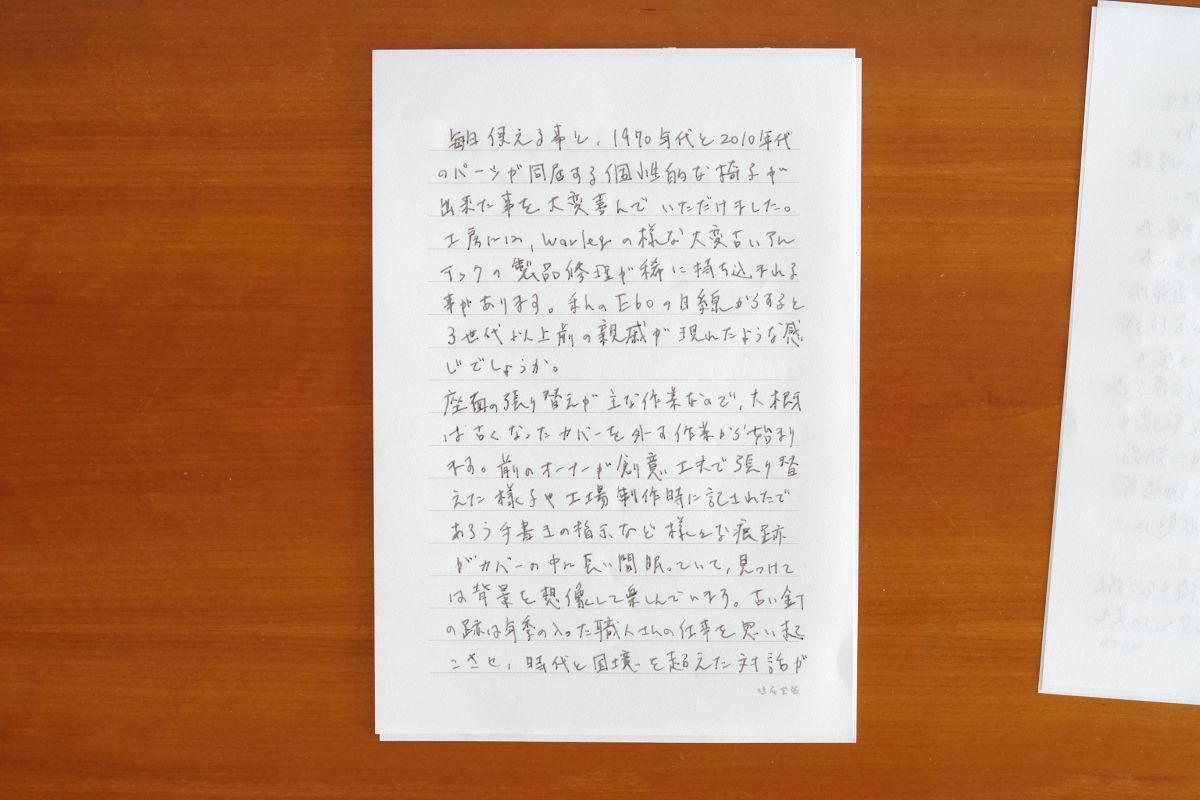 毎日使える事と、1970年代と2010年代
のパーツが同居する個性的な椅子が
出来た事を大変喜んでいただけました。
工房には、の様な大変古いアル
テックの製品修理が稀に持ち込まれる
事があります。さんのE60の目線からすると
3世代以上前の親戚が現れたような感
じでしょうか。
座面の張り替えが主な作業なので、大概
は古くなったカバーを外す作業から始まり
ます。前のオーナーが創意工夫で張り替
えた様子や工場制作時に記されたで
あろう手書きの指示など様々な痕跡
がカバーの中に長い間眠っていて、見つけて
は背景を想像して楽しんでいます。古い釘
の跡は年季の入った職人さんの仕事を思い起
こさせ、時代と国境を超えた対話が